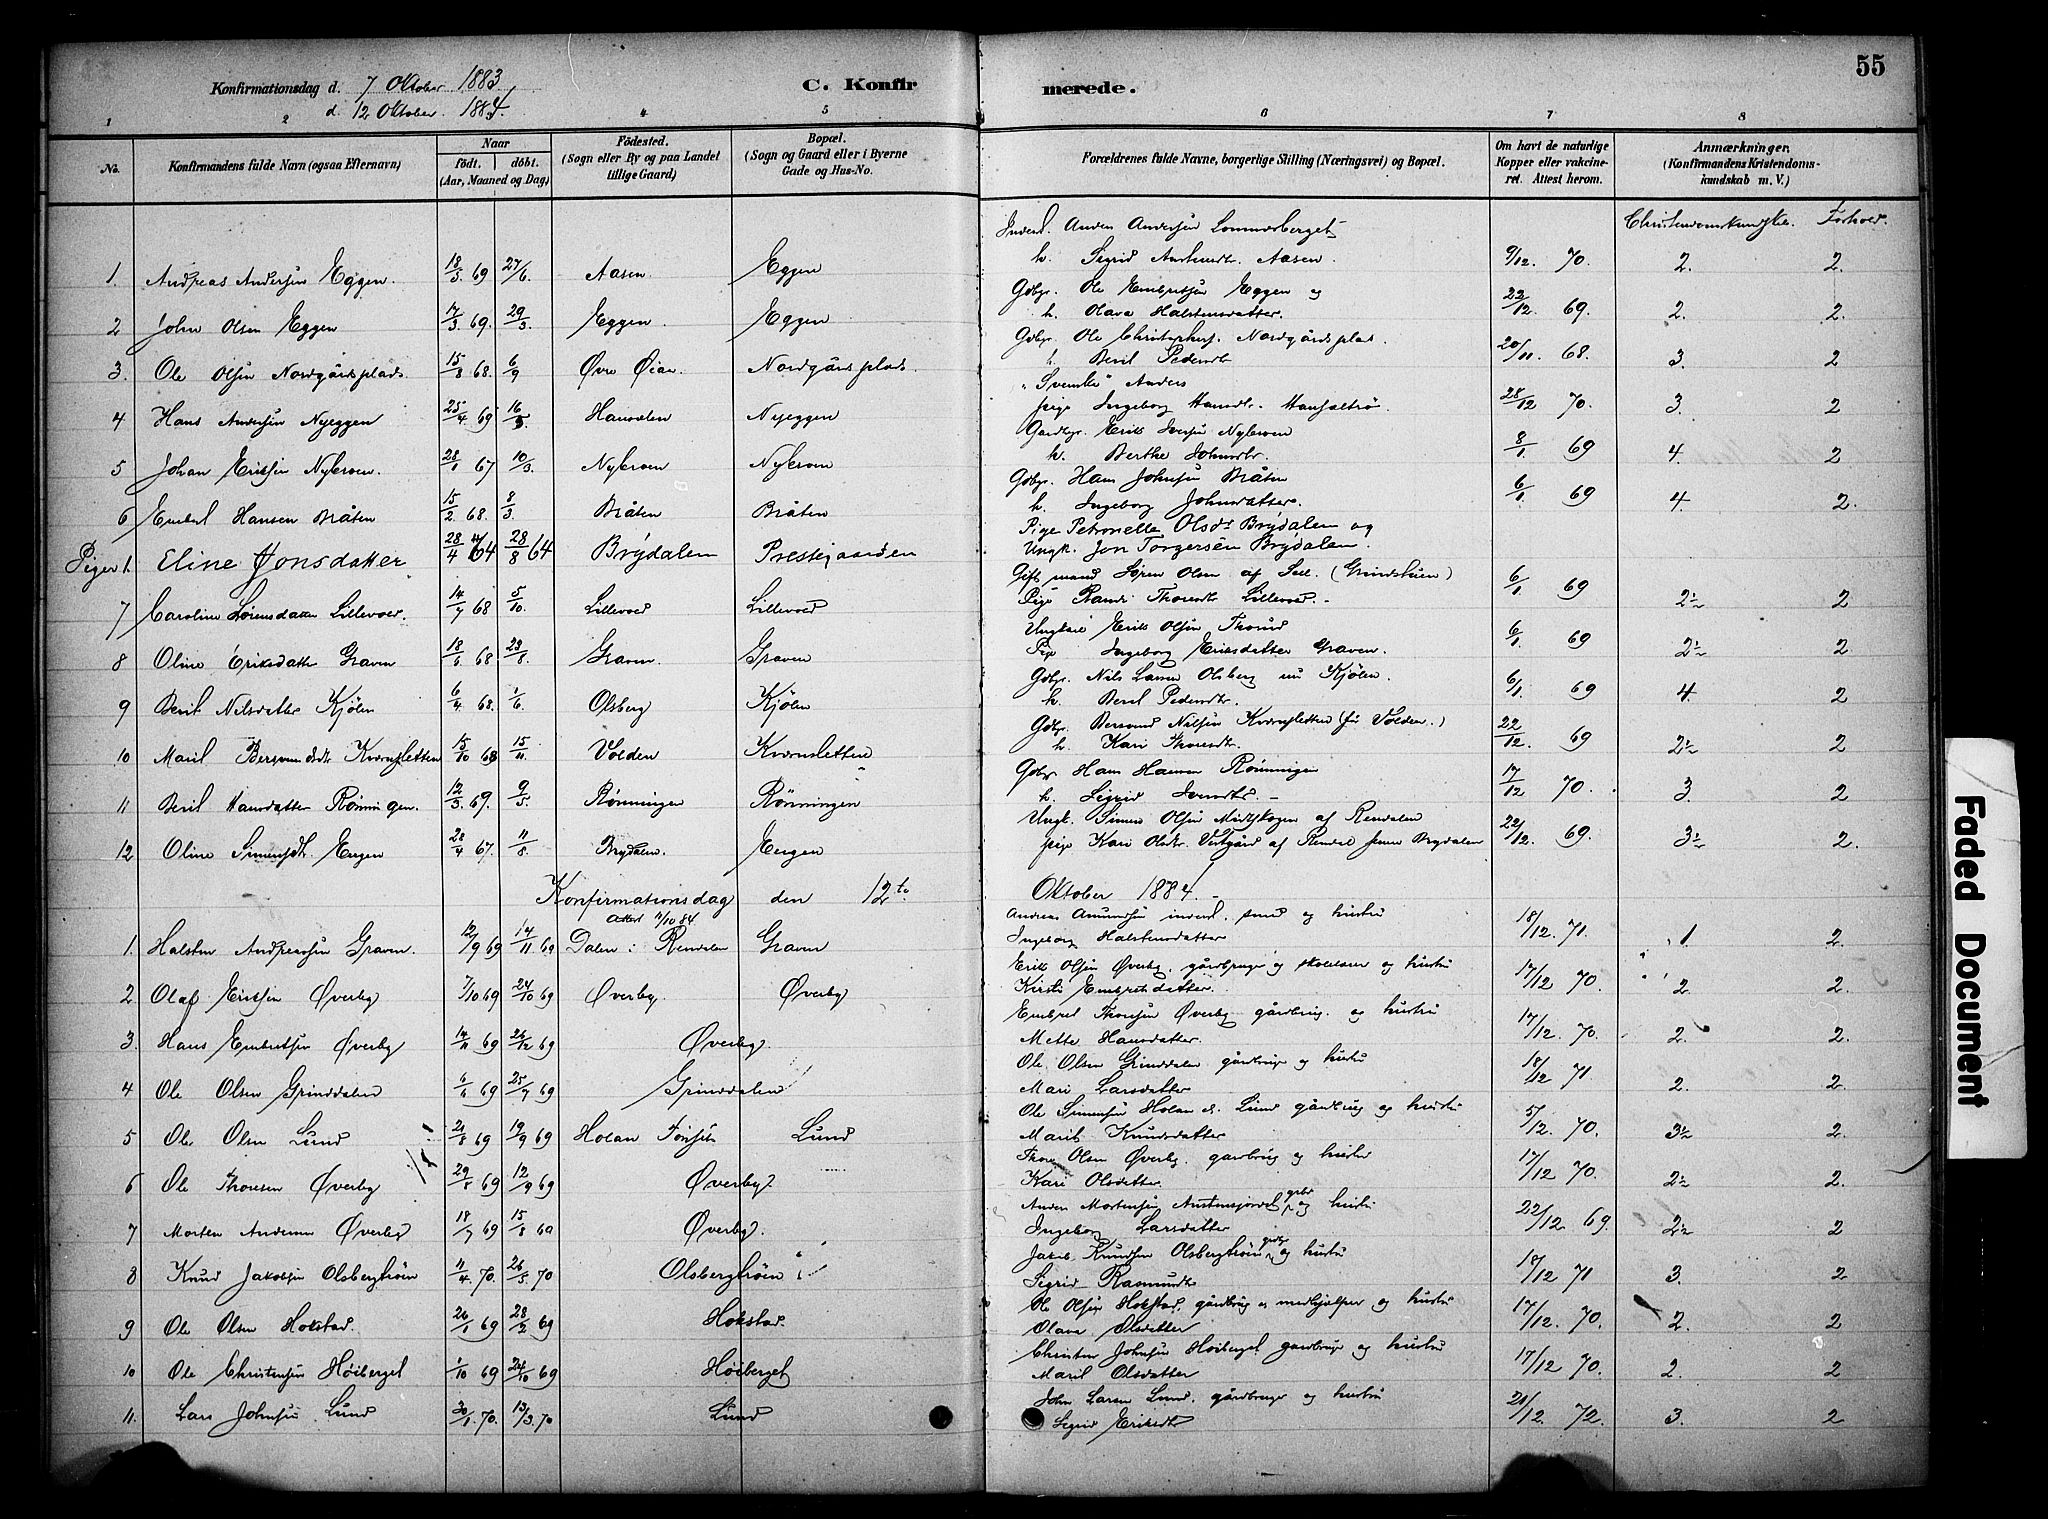 55
Konfirmationsdag d. 7 Oktober 1883.
d. 12 Oktober. 1884.
C. Konfirmerede.
1 2 4 5 6 7 8
No.
Konfirmandens fulde Navn (ogsaa Efternavn)
Naar
födt. döbt.
(Aar, Maaned og Dag)
Födested.
(Sogn eller By og paa Landet
tillige Gaard)
Bopæl.
(Sogn og Gaard eller i Byerne
Gade og Hus-No.
Forældrenes fulde Navne, borgerlige Stilling (Næringsvei) og Bopæl.
Om havt de naturlige
Kopper eller vakcine-
ret. Attest herom.
Anmærkninger.
(Konfirmandens Kristendoms-
kundskab m. V.)
Forhold.
1. Andreas Andersen Eggen. 69 27/6 Aasen. Eggen Anders Andersen h. Sigrid Aasen. 9/12 70. 2. 2.
2 John Olsen Eggen 7/3 69. 29/3. Eggen. Eggen Gdbr. Ole Embretsen Eggen og h. Olava Halstensdatter. 22/12 69. 2. 2.
3. Ole Olsen Nordgårdsplads. 15/8 68. 6/9 Øvre Øian Nordgårdsplads. Gdbr. Ole Nordgårdsplads. h. Beril Pedersdtr 20/11. 68. 3. 2
4 Hans Andersen Nyeggen 25/4 69 Nyeggen "Svenske" Anders pige Ingeborg Hansdtr. 28/12 70. 3. 2
5 Johan Eriksen Nyberoen. 28/1 67 10/3. Nyberoen Nyberoen Gardbr. Erik Iversen Nyberoen h. Berthe Johnsdtr. 8/1 69 4. 2
6 Embret Hansen Bråten 15/2 68. 8/3. Bråten Bråten Gdbr. Hans Johnsen Bråten h. Ingeborg Johnsdatter. 6/1 69 4. 2.
Piger 1. Eline Jonsdatter 28/4 64 28/8 64 Brydalen Prestegaarden Pige Petronelle Olsdr Brydalen og Ungk. Jon Torgersen Brydalen.
7 Caroline Sørensdatter Lillevoed. 14/7 68 5/10. Lillevoed Lillevoed Gift mand Søren Olsen af Sell. (Grindstuen) Pige Randi Thoresdtr Lillevoed. 6/1 69 2½ 2
8 Oline Eriksdatter Graven 68. 23/8. Graven. Graven Ungkarl Erik Olsen Pige Ingeborg Eriksdatter Graven. 6/1 69 2½ 2.
9 Berit Nilsdatter Kjölen 6/4 68. 1/6. Olsberg Kjölen Gdbr. Nils Larsen Olsberg nu Kjölen. h. Beril Pedersdtr. 6/1. 69 4 2
10 Maril Bersvendsdtr Kværnsletten 15/10 68 15/11 Volden Kværnsletten Gdbr. Bersvend Nilsen Kværnsletten (før Volden.) h. Kari Thoresdtr. 22/12. 69 2½ 2
11 Beril Hansdatter Rønningen. 12/3. 69. 9/5. Rønningen Rønningen Gdbr Hans Hansen Rønningen h. Sigrid 17/12 70. 3. 2
12 Oline Simensdtr. Engen 28/4 67. 11/8. Brydalen. Engen Ungk. Simen Olsen Midtskogen af Rendalen pige Kari Olsdtr. Vestgård af Rendal Brydalen 22/12. 69. 3½ 2.
Konfirmationsdag den 12te Oktober 1884.
1. Halsten Andreassen Graven. 12/9 69 14/11 69 Attest 11/10 84 Dalen i Rendalen Graven Andreas Amundsen inderst. smed og hustru Ingeborg Halstensdatter 18/12. 71. 1. 2.
2 Olaf Eriksen Øverby 7/10 69 24/10 69 Øverby. Øverby Erik Olsen Øverby, gårdbruger og skolelærer og hustru Kirsti Embretsdatter. 17/12 70. 2. 2.
3. Hans Embretsen Øverby 14/11 69 26/12 69 Øverby. Embret Thoresen Øverby gårdbrug. og hustru Mette Hansdatter 17/12. 70. 2. 2.
4 Ole Olsen Grinddalen 6/6 69 25/7 69 Grinddalen Ole Olsen Grinddalen gårdbruger og hustru Mari Larsdatter 18/12 71. 2. 2.
5 Ole Olsen Lund 21/8 69 19/9 69 Holan Tønset Lund Ole Simensen Holan v. Lund gårdbrug og hustru Marit Knudsdatter 5/12. 70. 3½ 2.
6 Ole Thoresen Øverby 29/8 69 12/9 69 Øverby? Thore Olsen Øverby. gårdbrug og hustru Kari Olsdatter. 17/12 70. 2½ 2.
7 Morten Andersen Øverby 18/7 69 15/8 69 Øverby. Anders Mortensen og hustru Ingeborg Larsdatter 22/12 69. 2½ 2
8 Knud Jakobsen Olsbergtrøen 11/4. 70. 26/5. 70 Olsbergtrøen Jakob Knudsen Olsbergtrøen og hustru Sigrid Rasmusdtr 18/12 71 3. 2
9 Ole Olsen Hokstad. 26/1 69 28/2 69 Hokstad. Ole Olsen Hokstad, gårdbrug og medhjælper og hustru Olava Olsdatter 17/12. 70. 2. 2
10 Ole Christensen Høiberget 1/10 69 24/10 69 Høiberget Christen Johnsen Høiberget gårdbruger og hustru Marit Olsdatter 17/12 70. 2. 2
11. Lars Johnsen Lund 30/1. 70. 13/3. 70 Lund John Larsen Lund. gårdbruger og hustru Sigrid Eriksdtr 21/12. 72. 3. 2
Faded Document